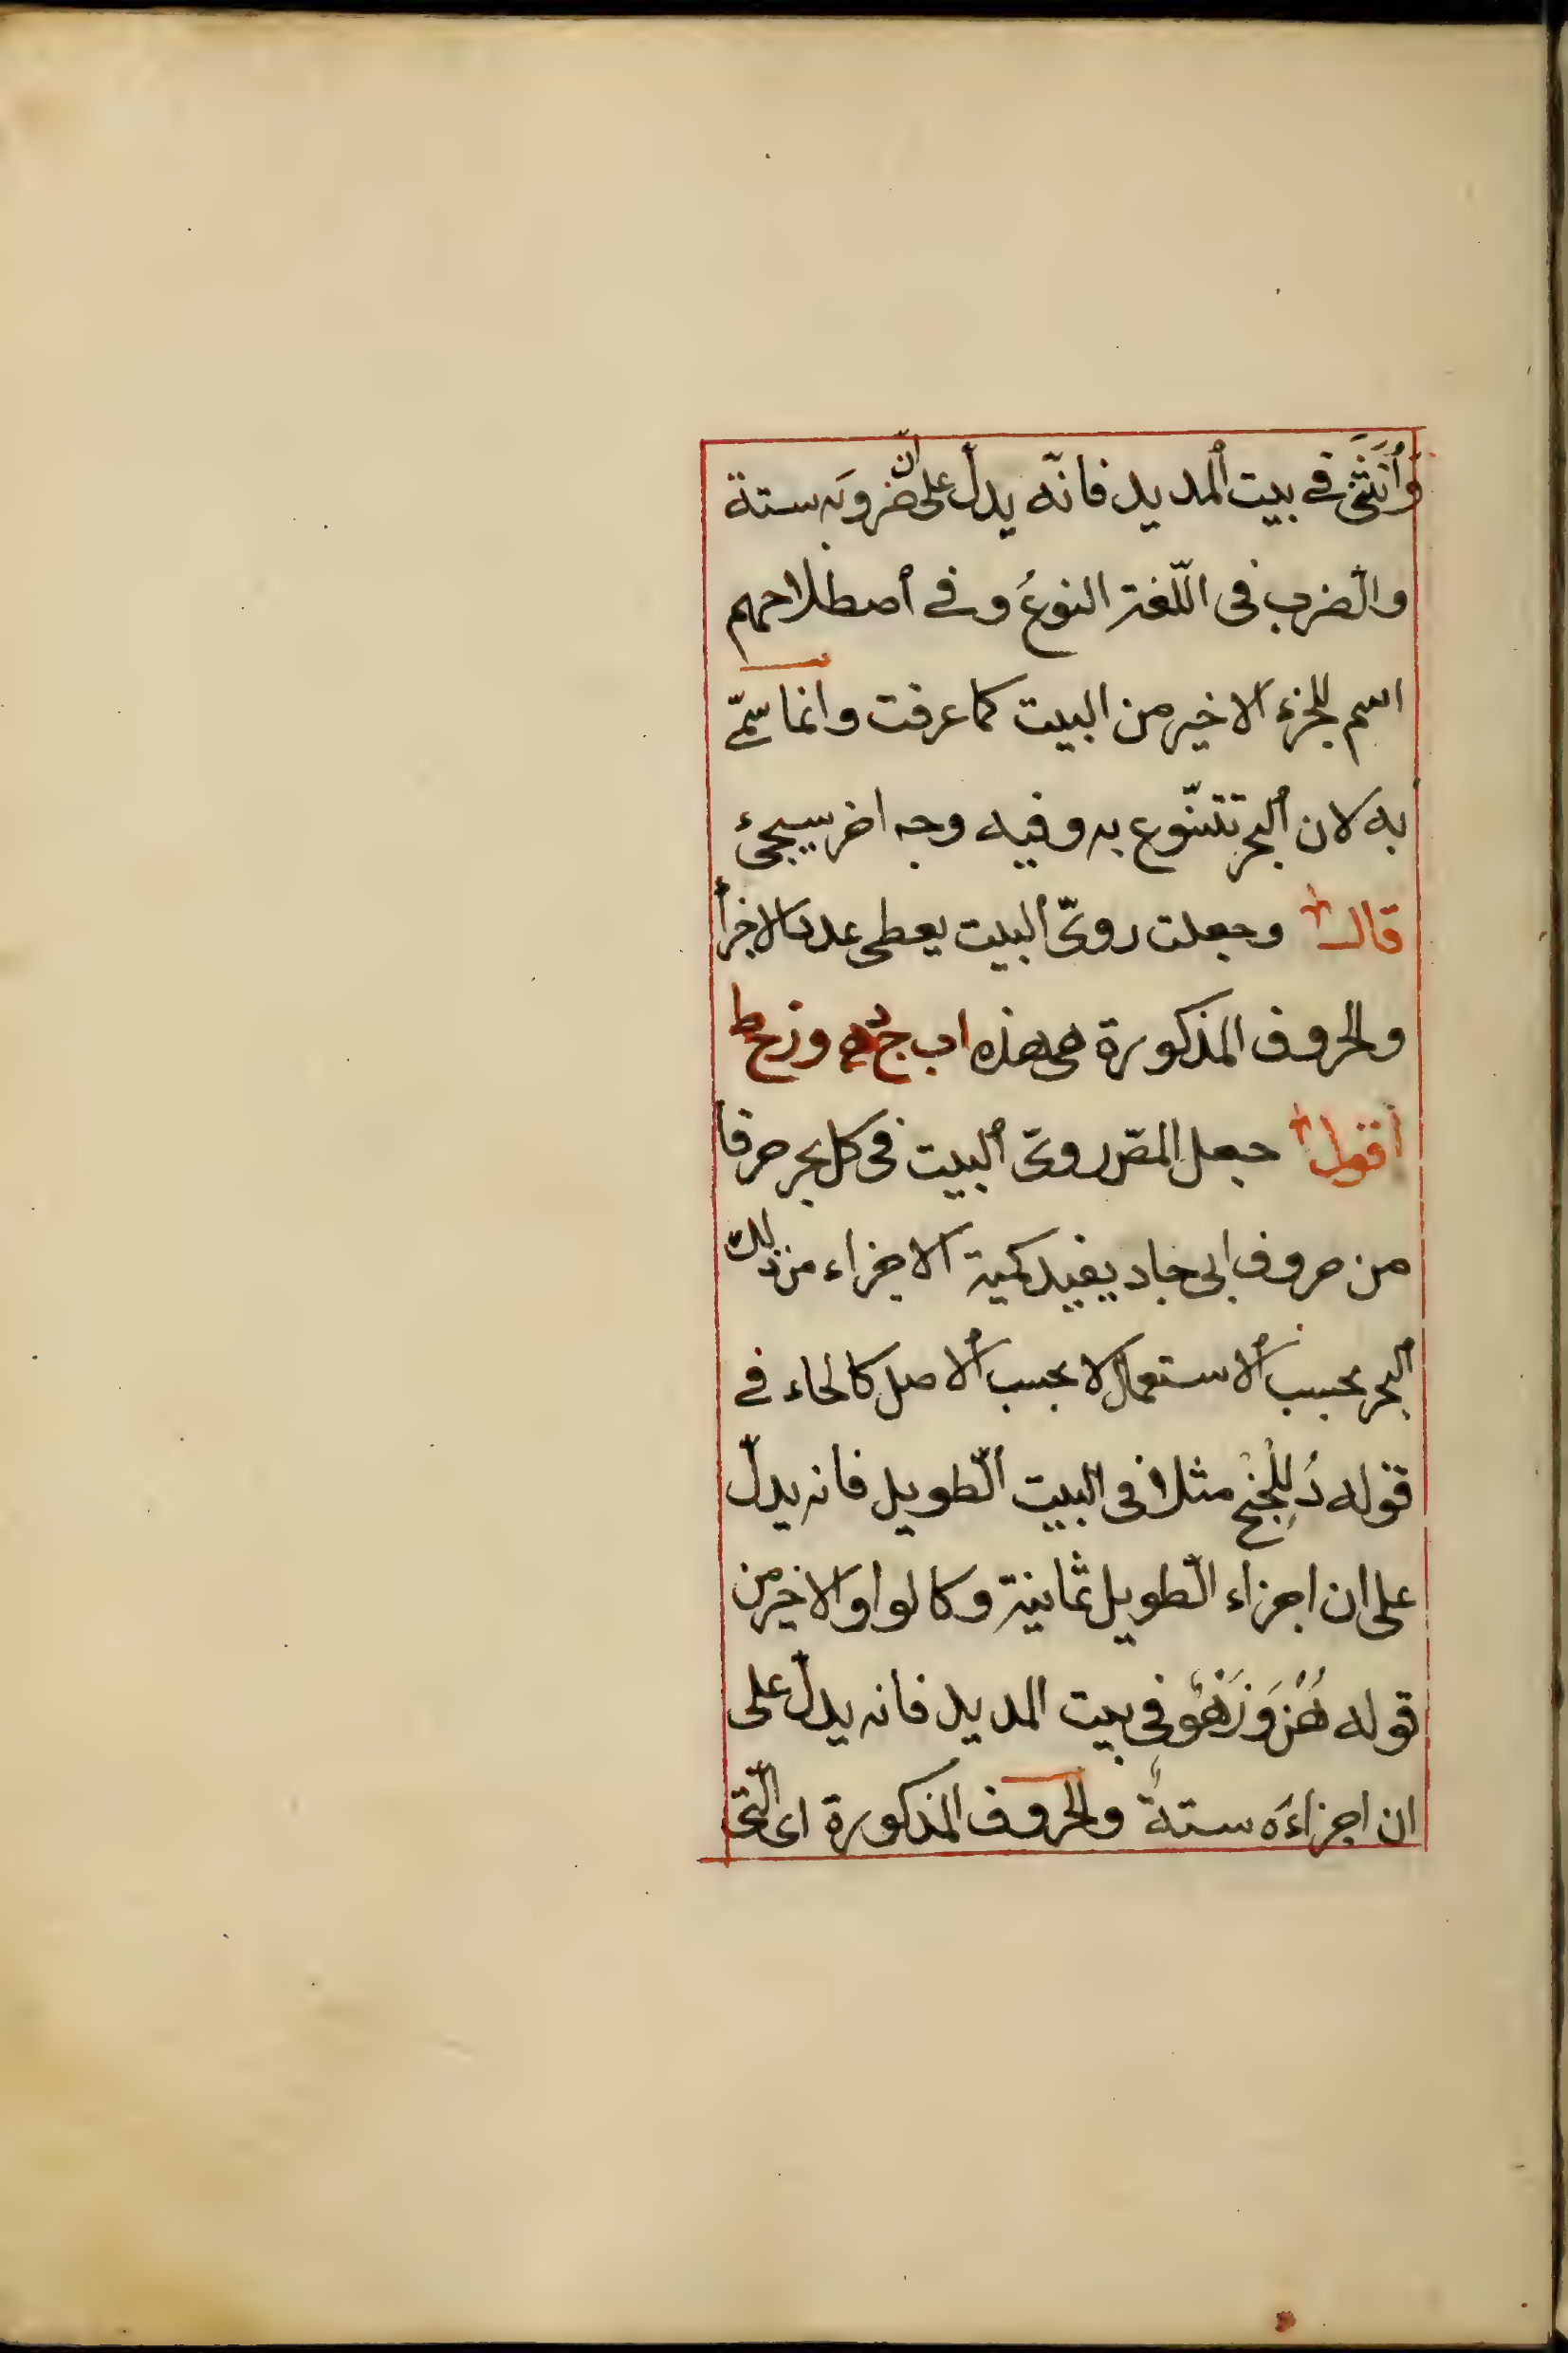 وَأُنَثَى فى بيت المديد فانّه يدلّ على انّ ضروبه ستة
والضرب فى اللّغة النوعُ وفى أصطلاحهم
اسم للجزء الاخير من البيت كما عرفت وانما سمّى
به لان البحر تتنّوع به وفيه وجه اخر سيجئ
قال وجعلت روىّ البيت يعطى عدد الاجزأ
والحروف المذكورة هى هذه اب ج د ه وزح ط
اقول جعل المص روىّ البيت فى كل بحر حرفا
من حروف ابى جاد يفيد كمية الاجزاء من ذلك
البحر بحسب الاستعمال لا بحسب الاصل كالحاء فى
قوله دُلِلْجَنِحِ مثلا فى البيت الطّويل فانه يدلّ
على ان اجزاء الطّويل ثمانية وكالواو الاخير من
قوله هُزْوَزَهْوٍ فى بيت المديد فانه يدلّ على
ان اجزاءَه ستةٌ والحروف المذكورة اى الّتى